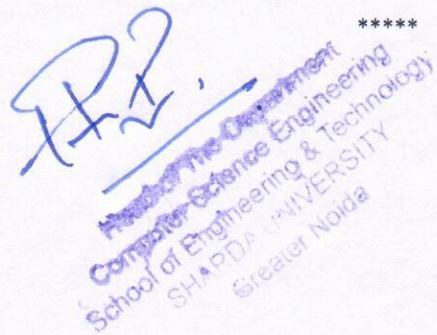 *****
Head of The Department
Computer Science Engineering
School of Engineering & Technology
SHARDA UNIVERSITY
Greater Noida